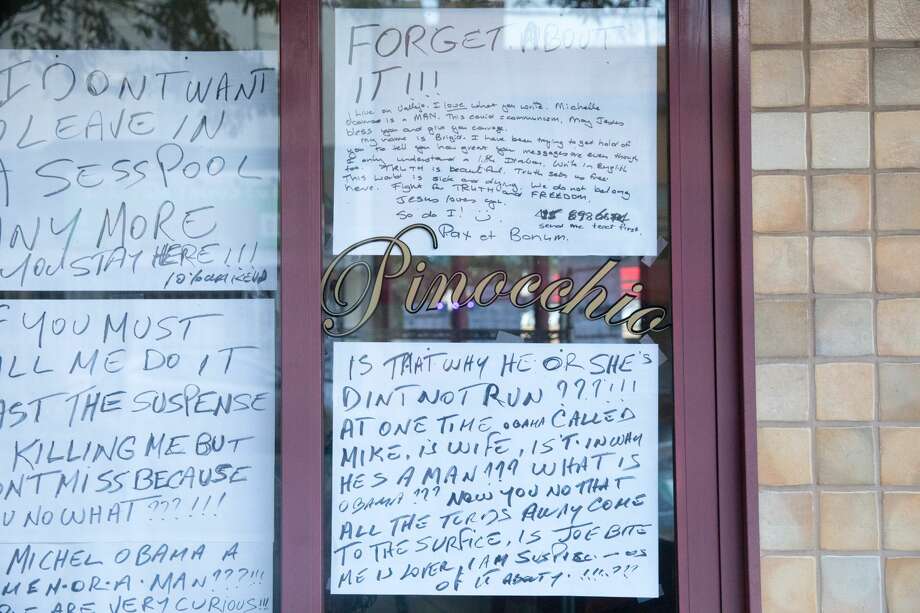 I DON'T WANT
LEAVE IN
A SESSPOOL
ANY MORE
YOU STAY HERE!!!
YOU MUST
ALL ME DO IT
AST THE SUSPENSE
KILLING ME BUT
ONT MISS BECAUSE
U NO WHAT???!!!
MICHEL OBAMA A
MEN-OR-A MAN???!!!
ARE VERY CURIOUS!!!
FORGET ABOUT
IT!!!
I live on Vallejo. I love what you write. Michelle
is a MAN. This covid communism. May Jesus
bless you and give you courage.
My name is Brigit. I have been trying to get hold of
you to tell you how great your messages are even though
I only understand a Italian. Write in English
too. TRUTH is beautiful. Truth sets us free
This world is sick and dying. We do not belong
here. Fight for TRUTH and FREEDOM.
Jesus loves you.
So do I!
send me text first.
Pax et Bonum.
Pinocchio
IS THAT WHY HE OR SHE'S
DINT NOT RUN???!!!
AT ONE TIME OBAMA CALLED
MIKE, IS WIFE, IS'T IN WAY
HES A MAN??? WHAT IS
OBAMA??? NOW YOU NO THAT
ALL THE TURDS AWAY COME
TO THE SURFICE, IS JOE BITE
ME IS LOVER, I AM
OF IT !!!-?!?